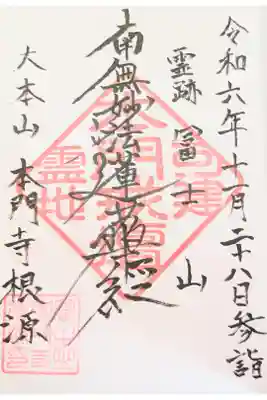 令和六年十一月二十八日参詣
霊跡 冨士山
南無妙法蓮華経
大本山 本門寺根源
霊地